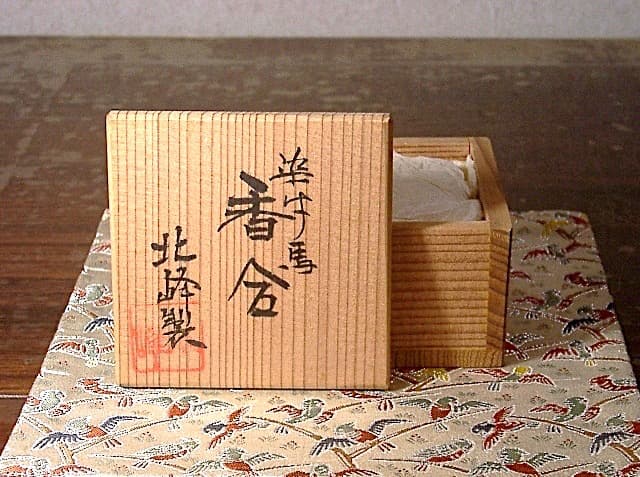 染付馬
香合
北峰製